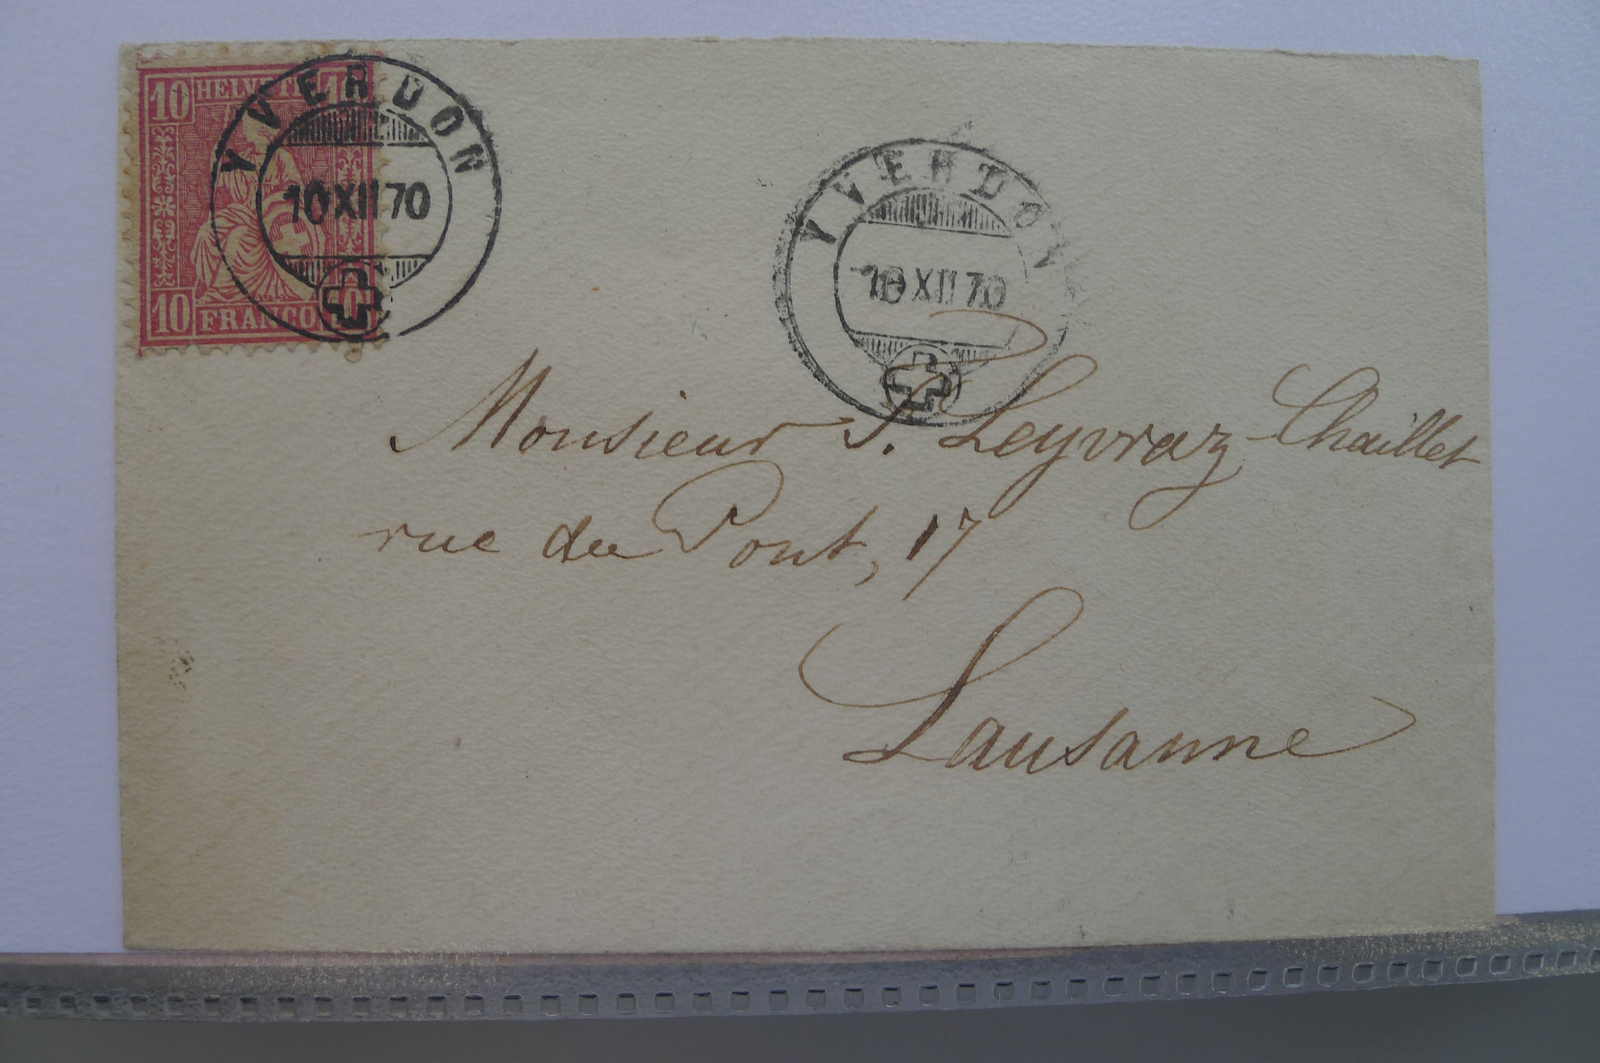 10 HELVETI 10
YVERDON
10 XII 70
10 FRANCO 10
YVERDON
10 XII 70
Monsieur S. Leyvraz-Chaillet
rue du Pont, 17
Lausanne